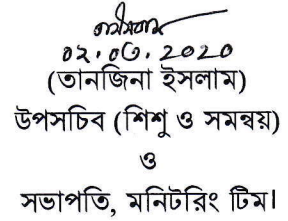 ০২.০৩.২০২০
(তানজিনা ইসলাম)
উপসচিব (শিশু ও সমন্বয়)
ও
সভাপতি, মনিটরিং টিম।